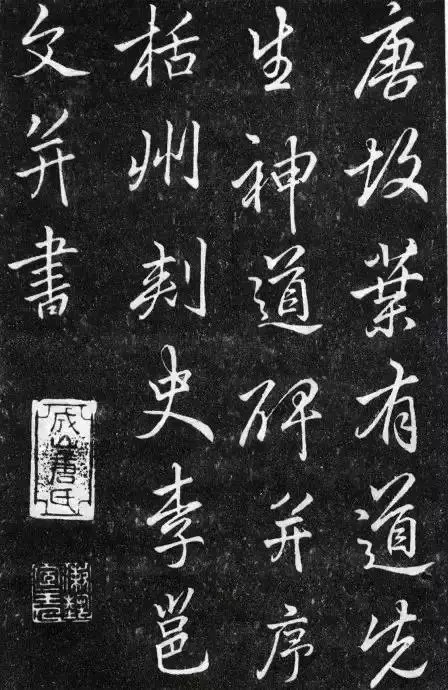 唐故葉有道先
生神道碑并序
栝州刺史李邕
文并書